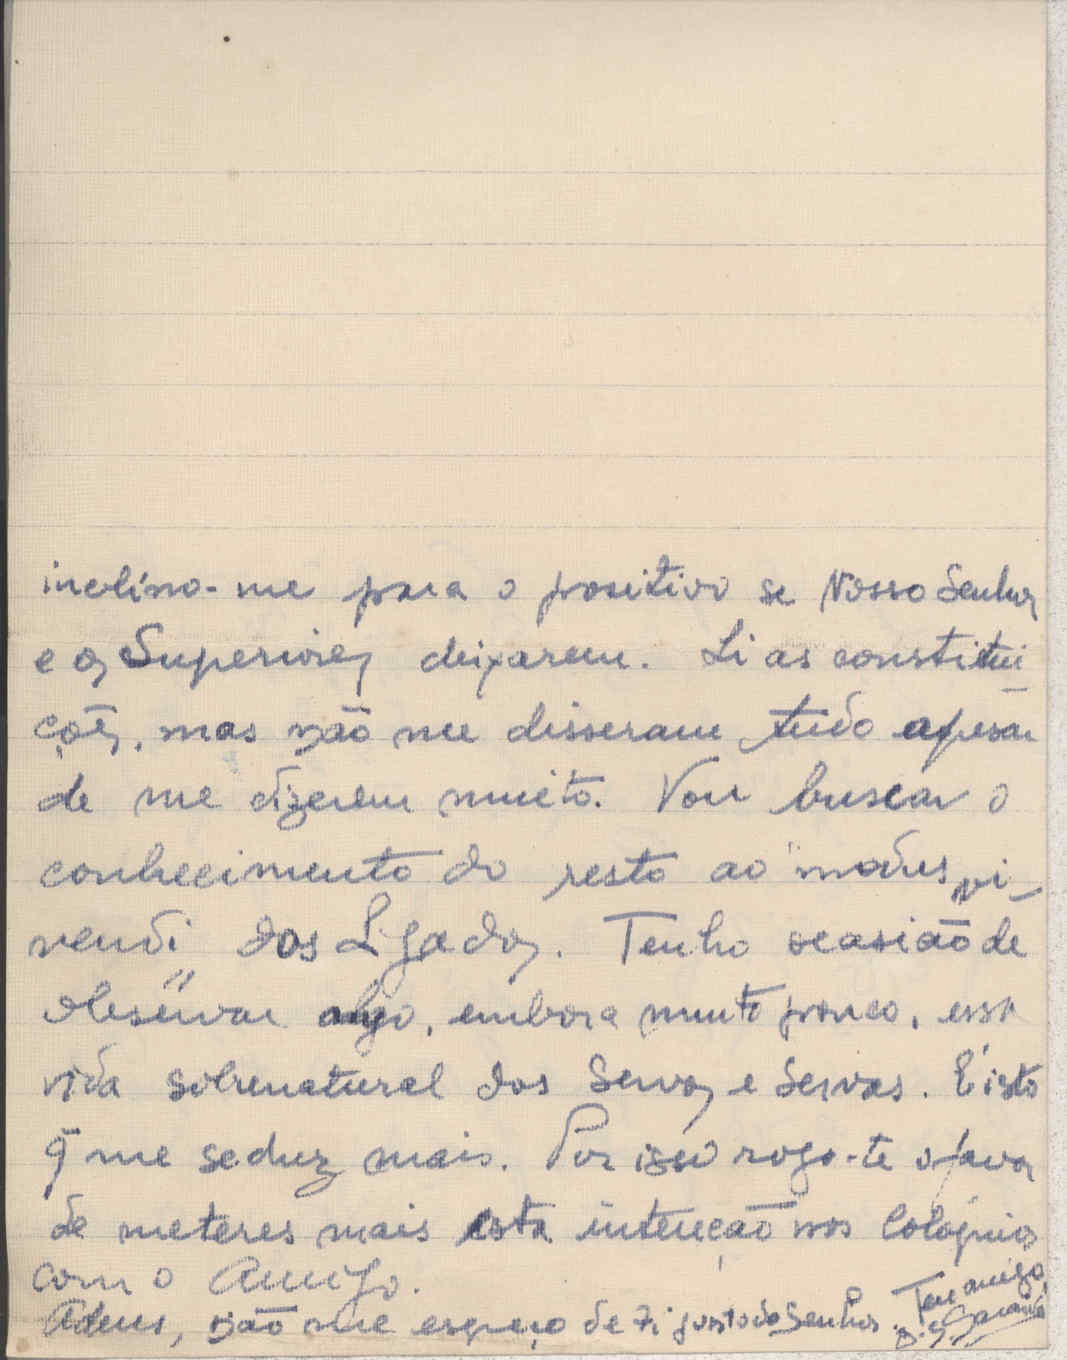 inclino-me para o positivo se Nosso Senhor
e os Superiores deixarem. Li as constitui-
ções, mas não me disseram tudo apesar
de me dizerem muito. Vou buscar o
conhecimento do resto ao "modus vi-
vendi" dos Ligados. Tenho ocasião de
observar algo, embora muito pouco, essa
vida sobrenatural dos Servos e Servas. É isto
q̃ me seduz mais. Por isso rogo-te o favor
de meteres mais esta intenção nos colóquios
com o Amigo.
Adeus, não me esqueço de ti junto do Senhor. Teu amigo